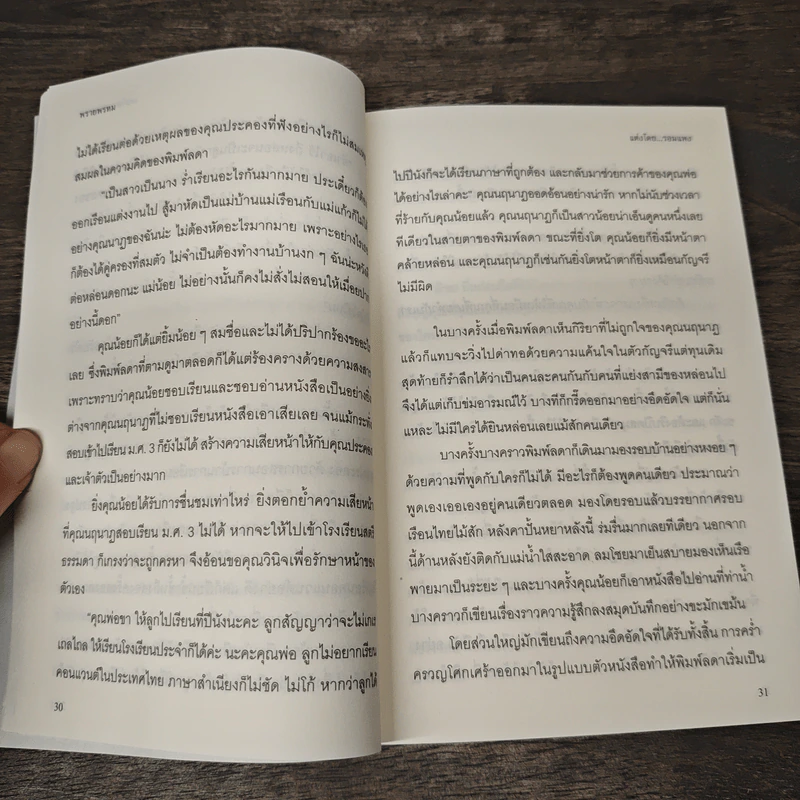 พรายพรหม
ไม่ได้เรียนต่อด้วยเหตุผลของคุณประคองที่ฟังอย่างไรก็ไม่สมเหตุ
สมผลในความคิดของพิมพ์ลดา
"เป็นสาวเป็นนาง ร่ำเรียนอะไรกันมากมาย ประเดี๋ยวก็ต้อง
ออกเรือนแต่งงานไป สู้มาหัดเป็นแม่บ้านแม่เรือนกับแม่แก้วก็ไม่ได้
อย่างคุณนาฏของฉันน่ะ ไม่ต้องหัดอะไรมากมาย เพราะอย่างไรเสีย
ก็ต้องได้คู่ครองที่สมตัว ไม่จำเป็นต้องทำงานบ้านงก ๆ ฉันน่ะหวังดี
ต่อหล่อนดอกนะ แม่น้อย ไม่อย่างนั้นก็คงไม่สั่งไม่สอนให้เมื่อยปาก
อย่างนี้ดอก"
คุณน้อยก็ได้แต่ยิ้มน้อย ๆ สมชื่อและไม่ได้ปริปากร้องขออะไร
เลย ซึ่งพิมพ์ลดาที่ตามดูมาตลอดก็ได้แต่ร้องครางด้วยความสงสาร
เพราะทราบว่าคุณน้อยชอบเรียนและชอบอ่านหนังสือเป็นอย่างยิ่ง
ต่างจากคุณนฤนาฏที่ไม่ชอบเรียนหนังสือเอาเสียเลย จนแม้กระทั่ง
สอบเข้าไปเรียน ม.ศ. 3 ก็ยังไม่ได้ สร้างความเสียหน้าให้กับคุณประคอง
และเจ้าตัวเป็นอย่างมาก
ยิ่งคุณน้อยได้รับการชื่นชมเท่าไหร่ ยิ่งตอกย้ำความเสียหน้า
ที่คุณนฤนาฏสอบเรียน ม.ศ. 3 ไม่ได้ หากจะให้ไปเข้าโรงเรียนสตรี
ธรรมดา ก็เกรงว่าจะถูกครหา จึงอ้อนขอคุณวินิจเพื่อรักษาหน้าของ
ตัวเอง
"คุณพ่อขา ให้ลูกไปเรียนที่ปีนังนะคะ ลูกสัญญาว่าจะไม่เกเร
เถลไถล ให้เรียนโรงเรียนประจำก็ได้ค่ะ นะคะคุณพ่อ ลูกไม่อยากเรียน
คอนแวนต์ในประเทศไทย ภาษาสำเนียงก็ไม่ชัด ไม่โก้ หากว่าลูกได้
30
แต่งโดย...รอมแพง
ไปปีนังก็จะได้เรียนภาษาที่ถูกต้อง และกลับมาช่วยการค้าของคุณพ่อ
ได้อย่างไรเล่าคะ" คุณนฤนาฏออดอ้อนอย่างน่ารัก หากไม่นับช่วงเวลา
ที่ร้ายกับคุณน้อยแล้ว คุณนฤนาฏก็เป็นสาวน้อยน่าเอ็นดูคนหนึ่งเลย
ทีเดียวในสายตาของพิมพ์ลดา ขณะที่ยิ่งโต คุณน้อยก็ยิ่งมีหน้าตา
คล้ายหล่อน และคุณนฤนาฏก็เช่นกันยิ่งโตหน้าตาก็ยิ่งเหมือนกัญจรี
ไม่มีผิด
ในบางครั้งเมื่อพิมพ์ลดาเห็นกิริยาที่ไม่ถูกใจของคุณนฤนาฏ
แล้วก็แทบจะวิ่งไปด่าทอด้วยความแค้นใจในตัวกัญจรีแต่ทุนเดิม
สุดท้ายก็รำลึกได้ว่าเป็นคนละคนกันกับคนที่แย่งสามีของหล่อนไป
จึงได้แต่เก็บข่มอารมณ์ไว้ บางทีก็กรี๊ดออกมาอย่างอึดอัดใจ แต่ก็นั่น
แหละ ไม่มีใครได้ยินหล่อนเลยแม้สักคนเดียว
บางครั้งบางคราวพิมพ์ลดาก็เดินมามองรอบบ้านอย่างหงอย ๆ
ด้วยความที่พูดกับใครก็ไม่ได้ มีอะไรก็ต้องพูดคนเดียว ประมาณว่า
พูดเองเออเองอยู่คนเดียวตลอด มองโดยรอบแล้วบรรยากาศรอบ
เรือนไทยไม้สัก หลังคาปั้นหยาหลังนี้ ร่มรื่นมากเลยทีเดียว นอกจาก
นี้ด้านหลังยังติดกับแม่น้ำใสสะอาด ลมโชยมาเย็นสบายมองเห็นเรือ
พายมาเป็นระยะ ๆ และบางครั้งคุณน้อยก็เอาหนังสือไปอ่านที่ท่าน้ำ
บางคราวก็เขียนเรื่องราวความรู้สึกลงสมุดบันทึกอย่างขะมักเขม้น
โดยส่วนใหญ่มักเขียนถึงความอึดอัดใจที่ได้รับทั้งสิ้น การคร่ำ
ครวญโศกเศร้าออกมาในรูปแบบตัวหนังสือทำให้พิมพ์ลดาเริ่มเป็น
31